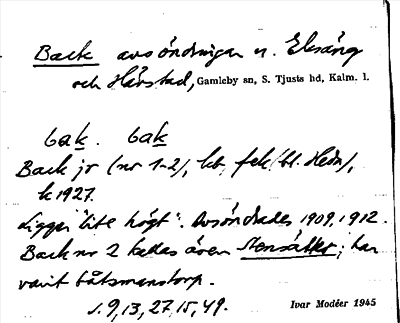 Back avsöndringar u. Ekäng
och Hårstad, Gamleby sn, S. Tjusts hd, Kalm. l.
bak. bak
Back jr (nr 1-2), kb, fek (bl. Hedn),
k 1927.
Ligger "lite högt". Avsöndrades 1909, 1912.
Back nr 2 kallas även Stensätter; har
varit båtsmanstorp.
s. 9, 13, 27, 15, 49.
Ivar Modéer 1945